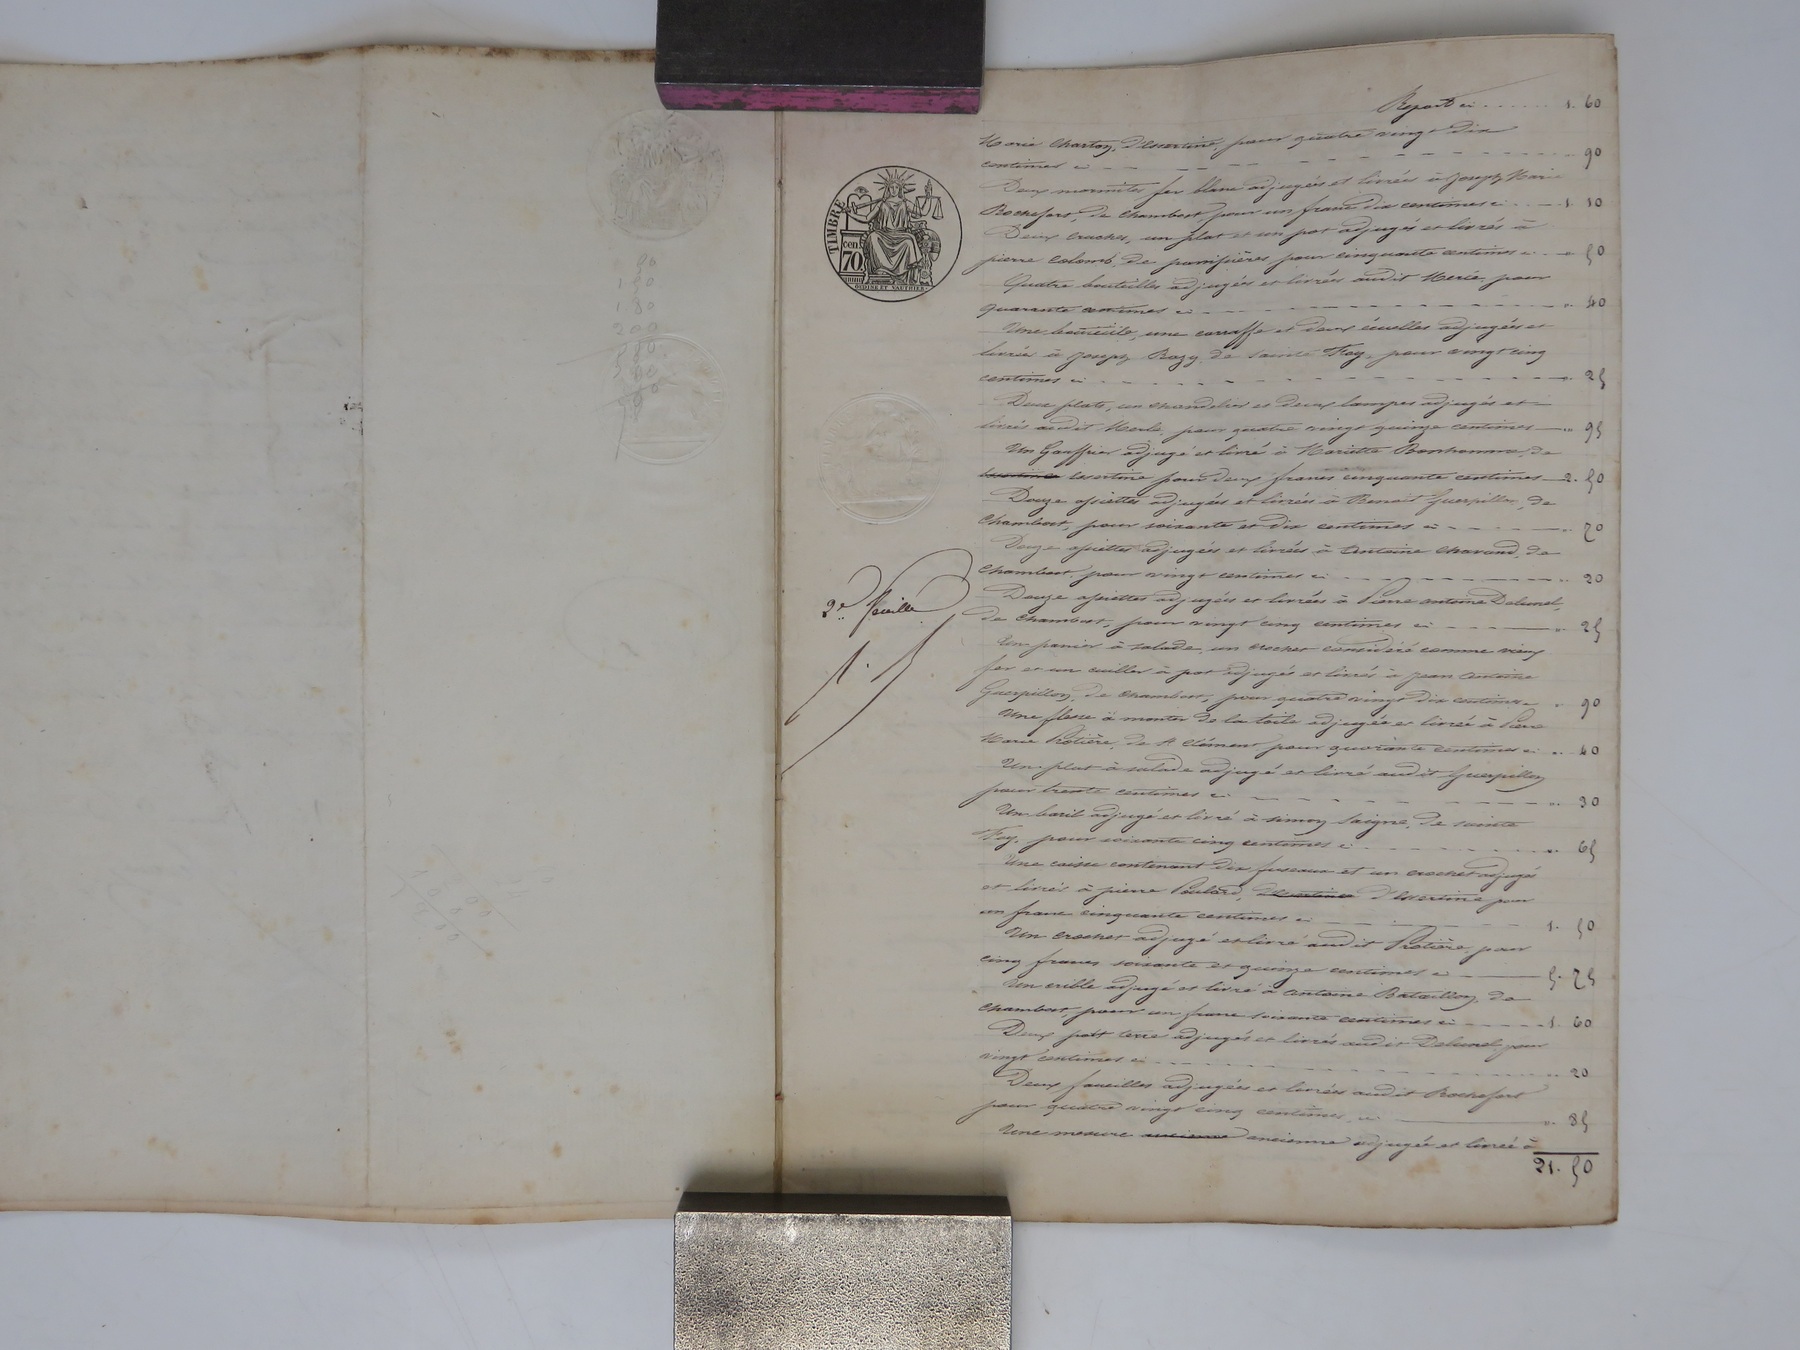 90
1 50
1 80
200
Report ci . . . . . . 1. 60
TIMBRE
cen.
70.
Marie Charton, d'Essertine, pour quatre vingt dix
centimes ci - - - - - 90
Deux marmites fer blanc adjugées et livrées à Joseph Marie
Rochefort, de Chambost, pour un franc dix centimes ci - - 1. 10
Deux cruches, un plat et un pot adjugés et livrés à
pierre Colomb, de pour cinquante centimes ci - - " 50
Quatre bouteilles adjugées et livrées audit Merle pour
quarante centimes ci - - - - - " 40
Une bouteille, une carraffe et deux écuelles adjugées et
livrées à Joseph Razy, de Sainte Foy, pour vingt cinq
centimes ci - - - - - " 25
Deux plats, un chandelier et deux lampes adjugés et
livrés audit Merle pour quatre vingt quinze centimes — " 95
Un Gauffrier adjugé et livré à Mariette Bonhomme, de
Essertine pour deux francs cinquante centimes — 2. 50
Douze assiettes adjugées et livrées à Benoit Guerpillon, de
Chambost, pour soixante et dix centimes ci - - - - 70
Douze assiettes adjugées et livrées à Antoine Chavand, de
Chambost, pour vingt centimes ci - - - - - " 20
2e. feuille
Douze assiettes adjugées et livrées à Pierre Antoine Delunel,
de Chambost, pour vingt cinq centimes ci - - - - " 25
Un panier à salade, un crochet considéré comme vieux
fer et un cuiller à pot adjugés et livrés à Jean Antoine
Guerpillon, de Chambost, pour quatre vingt dix centimes " 90
Une flesse à monter de la toile adjugée et livrée à Pierre
Marie Protière, de St Clément pour quarante centimes ci " 40
Un plat à salade adjugé et livré audit Guerpillon
pour trente centimes ci - - - - - " 30
Un baril adjugé et livré à Simon Saigne, de Sainte
Foy, pour soixante cinq centimes ci - - - - " 65
Une caisse contenant dix fuseaux et un crochet adjugés
et livrés à pierre Poulard, d'Essertine pour
un franc cinquante centimes ci - - - - 1. 50
Un crochet adjugé et livré audit Protière pour
cinq francs soixante et quinze centimes ci - - - 5. 75
Un crible adjugé et livré à Antoine Bataillon, de
Chambost, pour un franc soixante centimes ci - - - 1. 60
Deux pots terre adjugés et livrés audit Delunel pour
vingt centimes ci - - - - - " 20
Deux faucilles adjugées et livrées audit Rochefort
pour quatre vingt cinq centimes, ci - - - - " 85
Une mesure ancienne ancienne adjugée et livrée à
21. 50